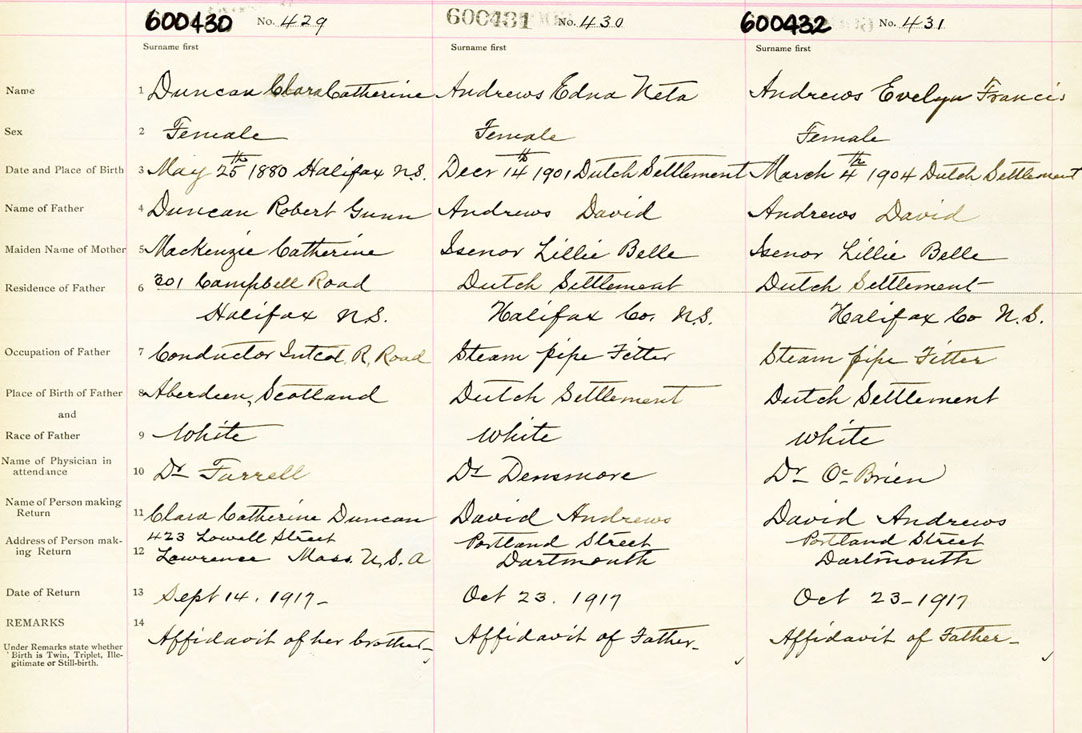 600430 No. 429 600431 No. 430 600432 No. 431
Surname first Surname first Surname first
Name 1 Duncan Clara Catherine Andrews Edna Neta Andrews Evelyn Francis
Sex 2 Female Female Female
Date and Place of Birth 3 May 25th 1880 Halifax N.S. Decr 14th 1901 Dutch Settlement March 4th 1904 Dutch Settlement
Name of Father 4 Duncan Robert Gunn Andrews David Andrews David
Maiden Name of Mother 5 MacKenzie Catherine Isenor Lillie Belle Isenor Lillie Belle
Residence of Father 6 301 Campbell Road Dutch Settlement Dutch Settlement
Halifax N.S. Halifax Co. N.S. Halifax Co N.S.
Occupation of Father 7 Conductor Intcol. R. Road Steam pipe Fitter Steam pipe Fitter
Place of Birth of Father 8 Aberdeen, Scotland Dutch Settlement Dutch Settlement
and
Race of Father 9 White White White
Name of Physician in
attendance 10 Dr Farrell Dr Densmore Dr O'Brien
Name of Person making
Return 11 Clara Catherine Duncan David Andrews David Andrews
Address of Person mak- 423 Lowell Street Portland Street Portland Street
ing Return 12 Lawrence Mass. U.S.A Dartmouth Dartmouth
Date of Return 13 Sept 14. 1917- Oct 23. 1917 Oct 23-1917
REMARKS 14
Affidavit of her brother- Affidavit of Father- Affidavit of Father-
Under Remarks state whether
Birth is Twin, Triplet, Ille-
gitimate or Still-birth.